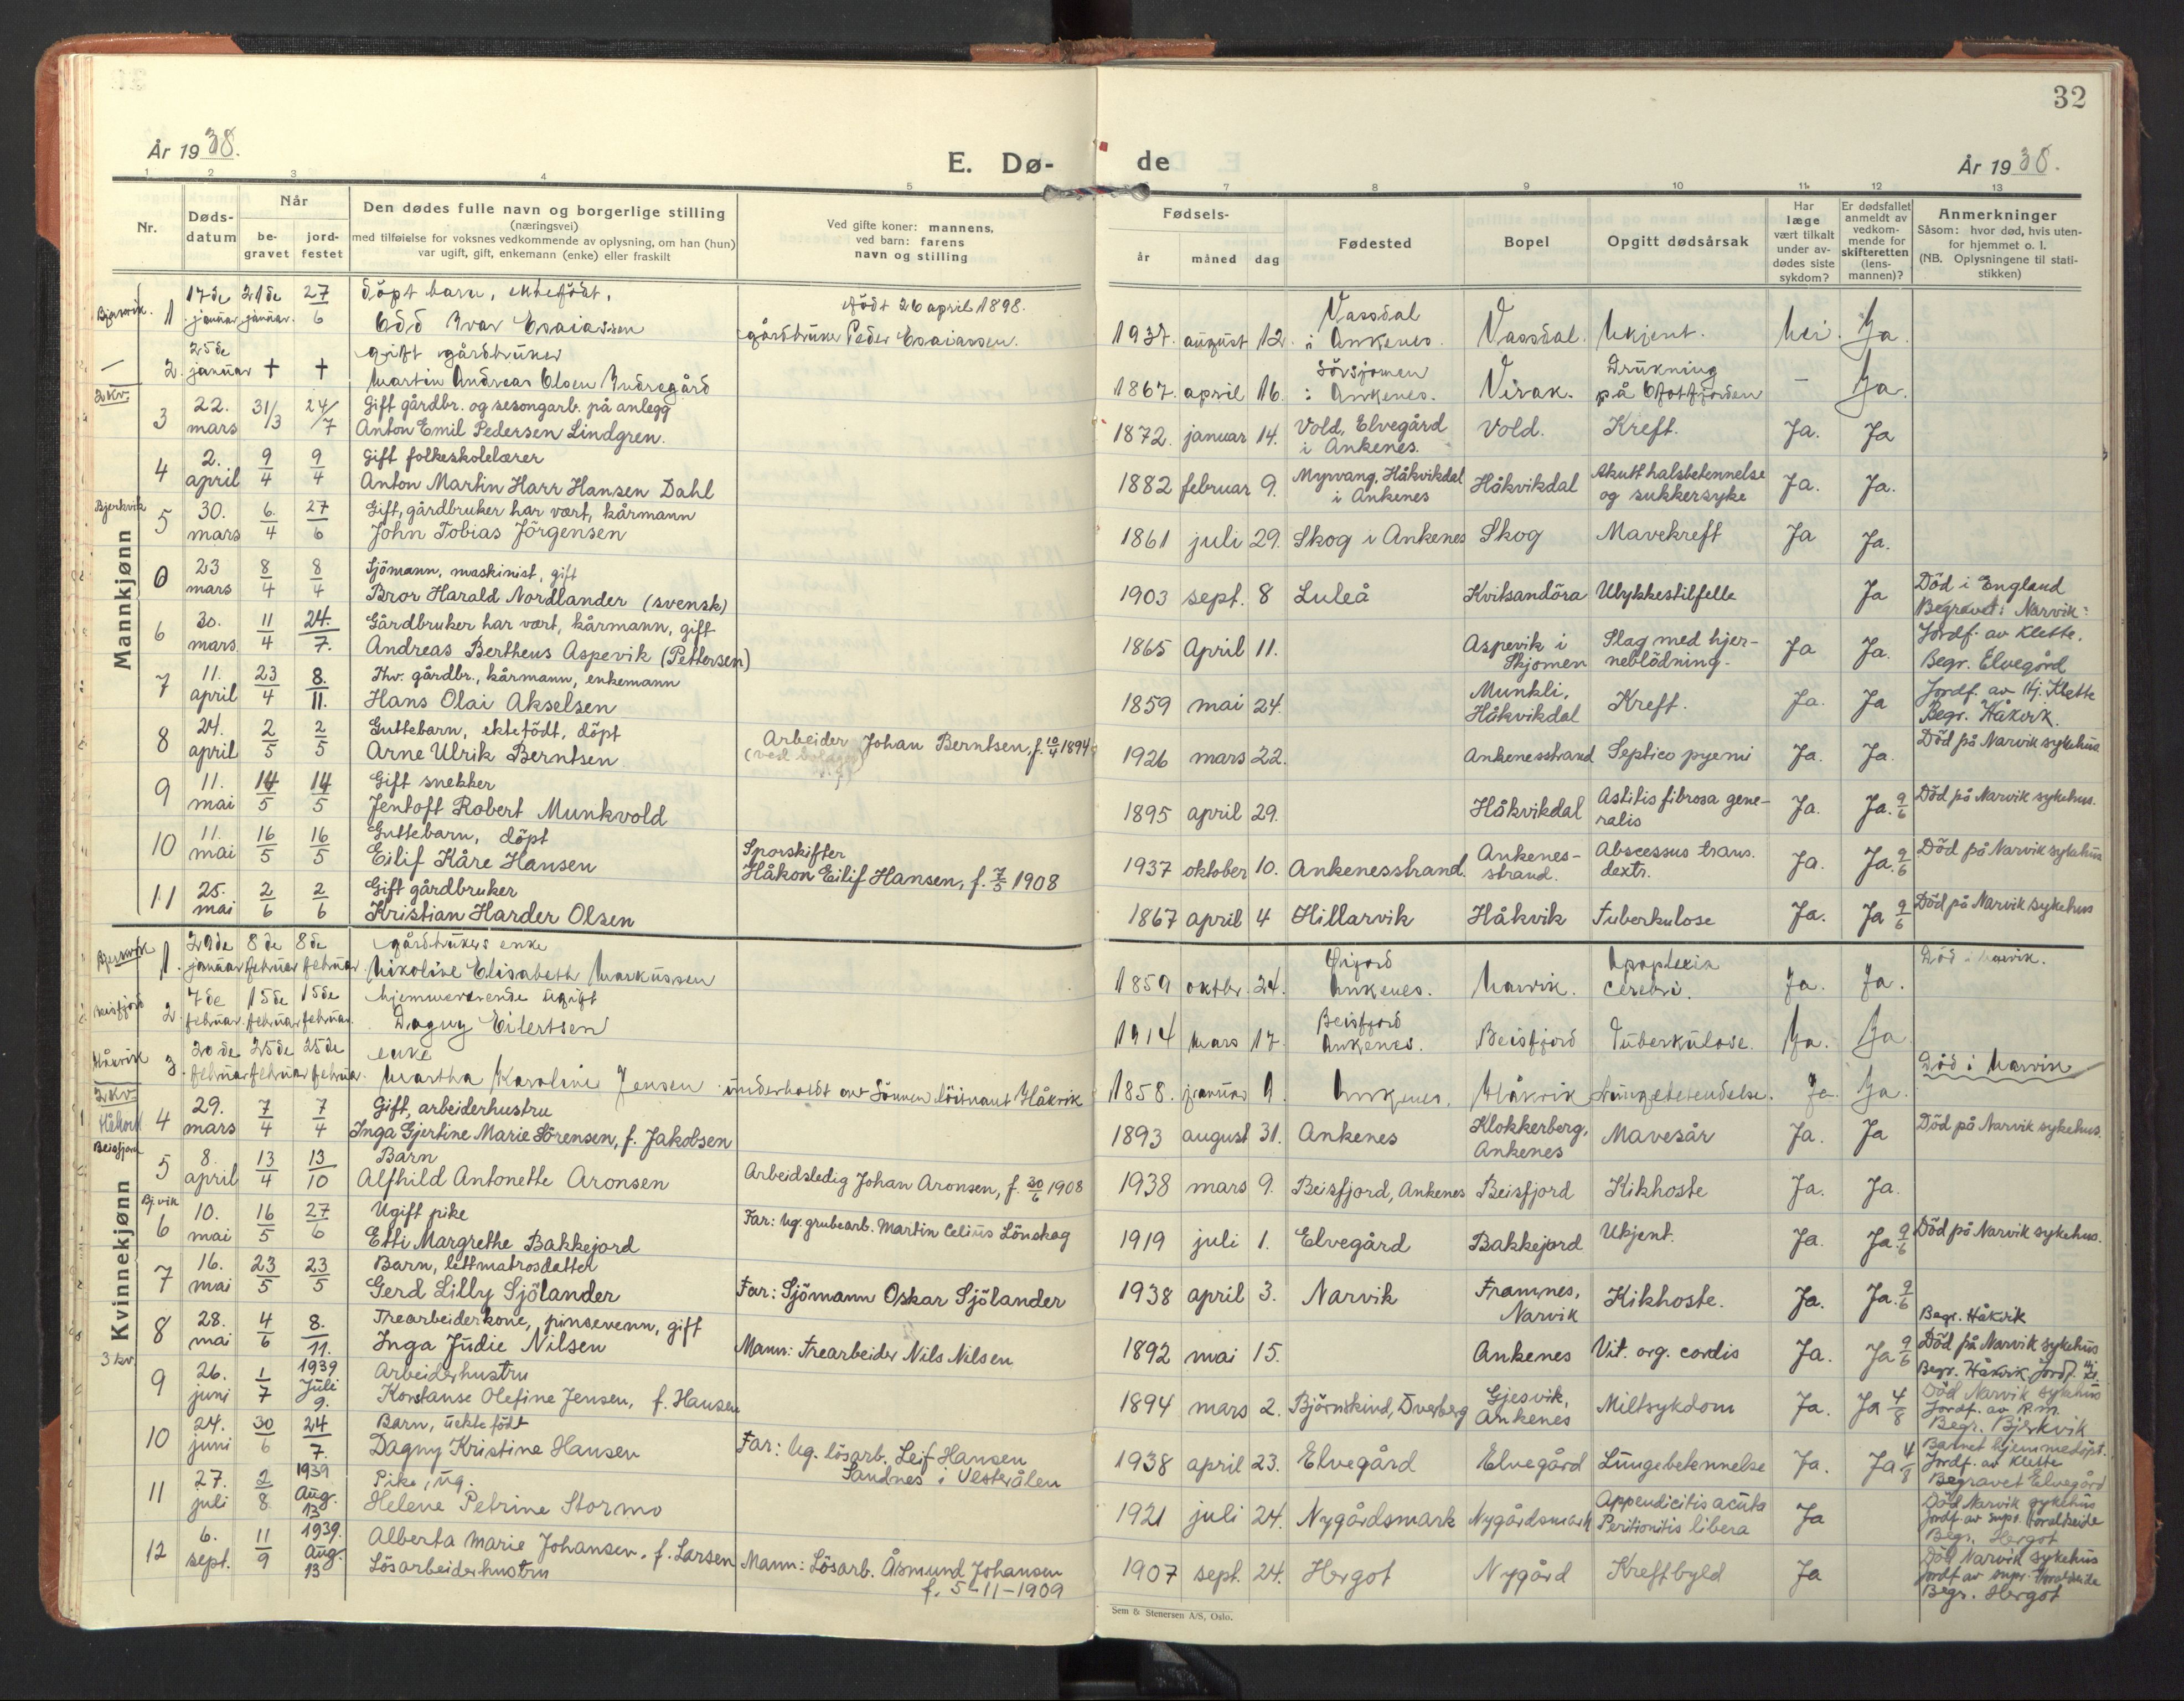 32
År 1938.
E. Dø-
de
År 1938.
1 2 3 4 5 7 8 9 10 11 12 13
Nr.
Døds-
datum
Når
be-
gravet
jord-
festet
Den dødes fulle navn og borgerlige stilling
(næringsvei)
med tilføielse for voksnes vedkommende av oplysning, om han (hun)
var ugift, gift, enkemann (enke) eller fraskilt
Ved gifte koner: mannens,
ved barn: farens
navn og stilling
Fødsels-
år måned dag
Fødested
Bopel
Opgitt dødsårsak
Har
læge
vært tilkalt
under av-
dødes siste
sykdom?
Er dødsfallet
anmeldt av
vedkom-
mende for
skifteretten
(lens-
mannen)?
Anmerkninger
Såsom: hvor død, hvis uten-
for hjemmet o. l.
(NB. Oplysningene til stati-
stikken)
Mannkjønn
Bjerkvik. 1 17de januar 21de januar. 27/6 döpt barn, ektefödt, Odd Ivar Esaiassen
födt 26 april 1898. gårdbruker Peder Esaiassen.
1937. august 12. Vassdal i Ankenes. Vassdal. Ukjent. Nei. Ja.
— 2. 25de januar + + gift gårdbruker Martin Andreas Olsen Indregård
1867. april 16. Sörsjomen i Ankenes. Virak. Drukning på Ofotfjorden – Ja.
2 kv.
3 22. mars 31/3 24/7 Gift gårdbr. og sesongarb. på anlegg Anton Emil Pedersen Lindgren.
1872. januar 14. Vold, Elvegård i Ankenes. Vold. Kreft. Ja. Ja
4 2. april 9/4 9/4 Gift folkeskolelærer Anton Martin Harr Hansen Dahl
1882 februar 9. Myrvang, Håkvikdal i Ankenes Håkvikdal Akutt halsbetennelse og sukkersyke Ja. Ja.
Bjerkvik 5 30. mars 6./4 27/6 Gift, gårdbruker har vært, kårmann John Tobias Jörgensen
1861 juli 29. Skog i Ankenes Skog Mavekreft Ja Ja.
0 23 mars 8/4 8/4 Sjömann, maskinist, gift Bror Harald Nordlander (svensk)
1903 sept. 8 Luleå Kvitsandöra Ulykkestilfelle Ja Död i England Begravet i Narvik
6 30. mars 11/4 24./7. Gårdbruker har vært, kårmann, gift Andreas Bertheus Aspevik (Pettersen)
1865 April 11. Aspevik i Skjomen Slag med hjer-neblödning. Ja Ja. Jordf. av Klette. Begr. Elvegård
7 11. april 23/4 8./11. Fhv. gårdbr., kårmann, enkemann Hans Olai Akselsen
1859 mai 24. Munkli, Håkvikdal Kreft. Ja. Ja Jordf. av Hj. Klette Begr. Håkvik.
8 24. april 2/5 2/5 Guttebarn, ektefödt, döpt Arne Ulrik Berntsen
Arbeider Johan Berntsen, f. 10/4 1894
1926 mars 22. Ankenesstrand Septico pyemi Ja. Ja. Död på Narvik sykehus
9 11. mai 14/5 14/5 Gift snekker Jentoft Robert Munkvold
1895 april 29. Håkvikdal Astitis fibrosa gene-ralis Ja. Ja. 9/6 Död på Narvik sykehus.
10 11. mai 16/5 16/5 Guttebarn, döpt Eilif Kåre Hansen
Sporskifter Håkon Eilif Hansen, f. 7/5 1908
1937 oktober 10. Ankenesstrand. Ankenes-strand. Abscessus trans. dextr. Ja. Ja. 9/6 Död på Narvik sykehus
11 25. mai 2/6 2/6 Gift gårdbruker Kristian Harder Olsen
1867 april 4 Hillarvik Håkvik Tuberkulose Ja. Ja 9/6 Död på Narvik sykehus
Kvinnekjønn
Bjerkvik 1. 29de januar 8de februar 8de februar gårdbrukers enke Nikoline Elisabeth Markussen
1859 oktbr. 24. Öijord Ankenes. Narvik. Apoplexia cerebri. Ja. Ja. Död i Narvik.
Beisfjord 2. 7de februar. 15de februar 15de februar. hjemmeværende ugift Dagny Eilertsen
1914 mars 17. Beisfjord Ankenes. Beisfjord Tuberkulose. Ja. Ja
Håkvik 3. 20de februar 25de februar 25de februar. enke Martha Karoline Jensen underholdt av Sönnen löitnant Håkvik
1858. januar 9. Ankenes, Håkvik Lungebetendelse. Ja. Ja. Död i Narvik
2 kv.
Håkvik 4 29. mars 7/4 7/4 Gift, arbeiderhustru Inga Gjertine Marie Sörensen, f. Jakobsen
1893 august 31. Ankenes Klokkerberg, Ankenes Mavesår Ja. Ja Död på Narvik sykehus.
Beisfjord 5 8. april 13/4 13/10 Barn Alfhild Antonette Aronsen
Arbeidsledig Johan Aronsen, f. 30/6 1908
1938 mars 9. Beisfjord, Ankenes Beisfjord Kikhoste Ja. Ja.
Bj.vik 6 10. mai 16/5 27/6 Ugift pike Etti Margrethe Bakkejord
Far: Ug. grubearb. Martin Celius Lönskog
1919 juli 1. Elvegård Bakkejord Ukjent. Ja. Ja 9/6 Död på Narvik sykehus.
7 16. mai 23/5 23/5 Barn, lettmatrosdatter Gerd Lilly Sjölander
Far: Sjömann Oskar Sjölander
1938 april 3. Narvik Framnes, Narvik Kikhoste. Ja. Ja. 9/6
8 28. mai 4/6 8./11. Trearbeiderkone, pinsevenn, gift Inga Judie Nilsen
Mann: Trearbeider Nils Nilsen
1892 mai 15. Ankenes Vit. org. cordis Ja. Ja 9/6 Begr. Håkvik Död på Narvik sykehus
3 kv.
9 26. juni 1/7 1939 Juli 9. Arbeiderhustru Konstanse Olefine Jensen, f. Hansen
1894 mars 2. Björnskind, Dverberg Gjesvik, Ankenes Miltsykdom Ja. Ja 4/8 Begr. Håkvik Jordf. Död Narvik sykehus
10 24. juni 30/6 24/7. Barn, uekte födt Dagny Kristine Hansen
Far: Ug. lösarb. Leif Hansen Sandnes i Vesterålen
1938 april 23. Elvegård Elvegård Lungebetennelse Ja. Ja 4/8 Barnet hjemmedöpt. Jordf. av Klette Begravet Elvegård
11 27. juli 2/8 1939 Aug. 13 Pike, ug. Helene Petrine Stormo
1921 juli 24. Nygårdsmark Nygårdsmark Appendicitis acuta Peritionitis libera Ja Död Narvik sykehus Begr. Hergot
12 6. sept. 11/9 1939. Aug. 13 Alberta Marie Johansen, f. Larsen Lösarbeiderhustru
Mann: Lösarb. Åsmund Johansen f. 5-11-1909
1907 sept. 24. Hergot Nygård Kreftbyld Ja Död Narvik sykehus Begr. Hergot
Sem & Stenersen A/S, Oslo.